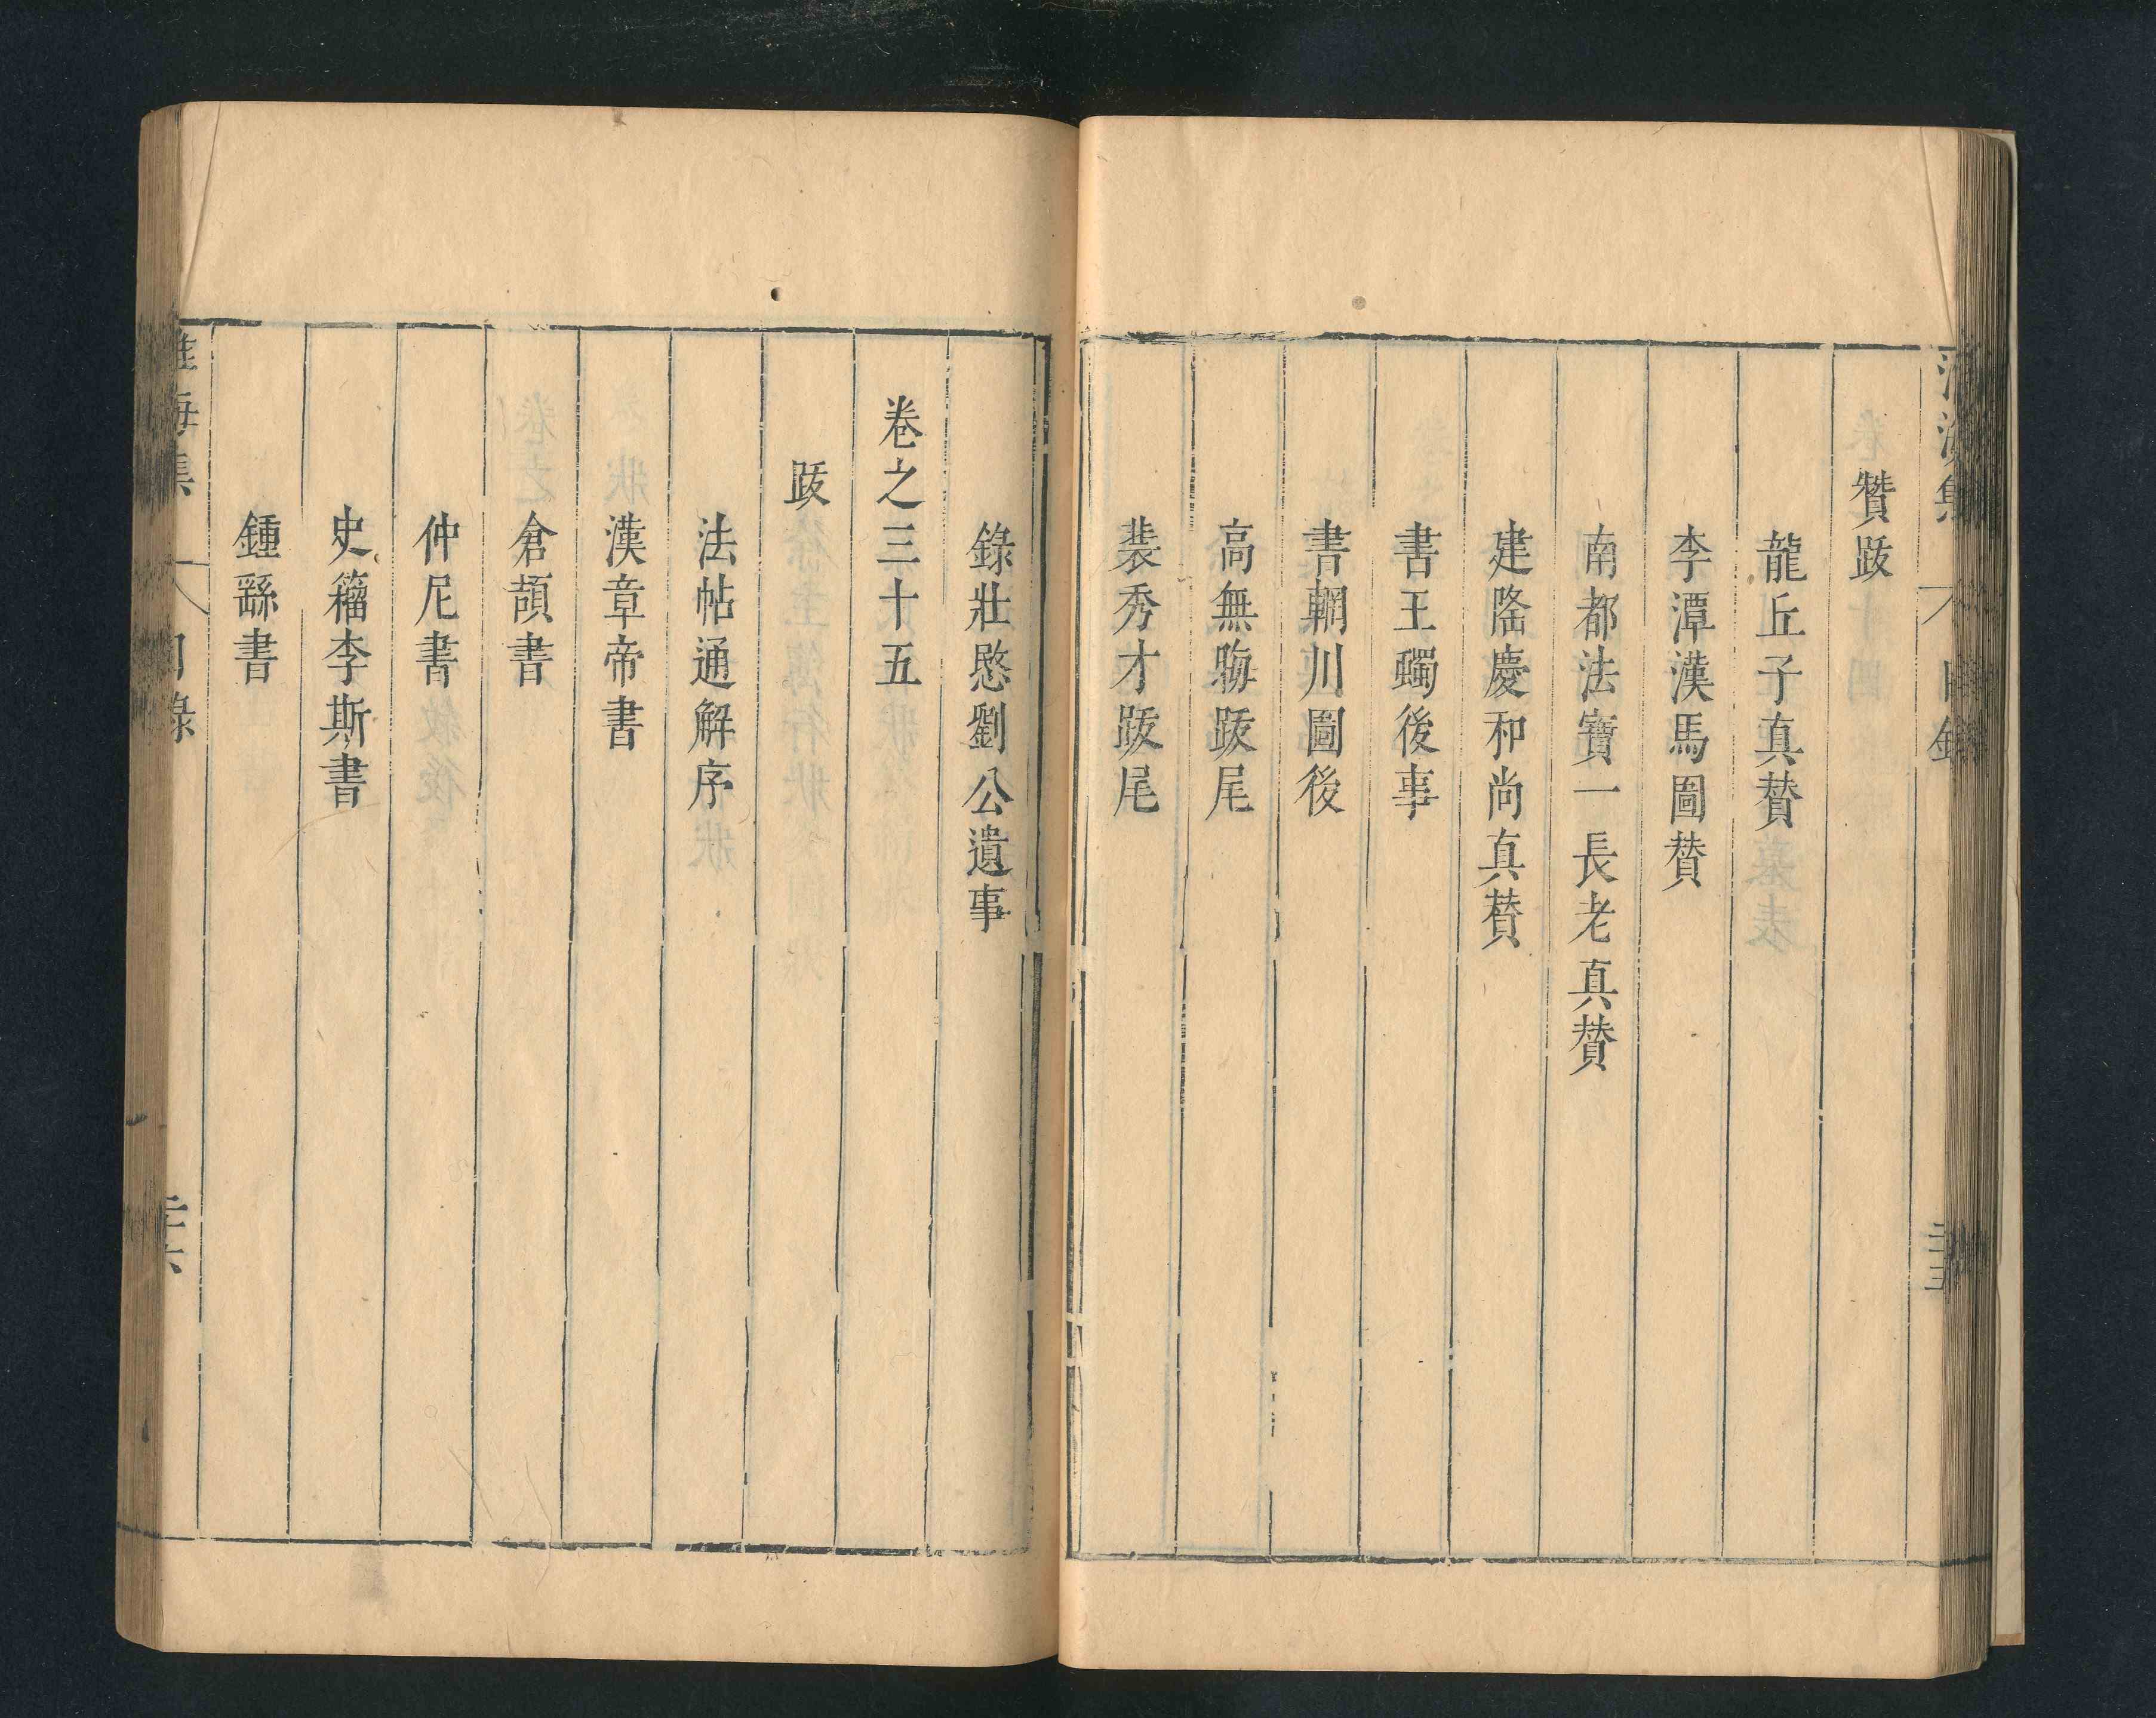 淮海集 目錄 二十五
贊跋
龍丘子真贊
李潭漢馬圖贊
南都法寶一長老真贊
建隆慶和尚真贊
書王蠋後事
書輞川圖後
高無悔跋尾
裴秀才跋尾
錄壯愍劉公遺事
卷之三十五
跋
法帖通解序
漢章帝書
倉頡書
仲尼書
史籀李斯書
鍾繇書
淮海集 目錄 二十六